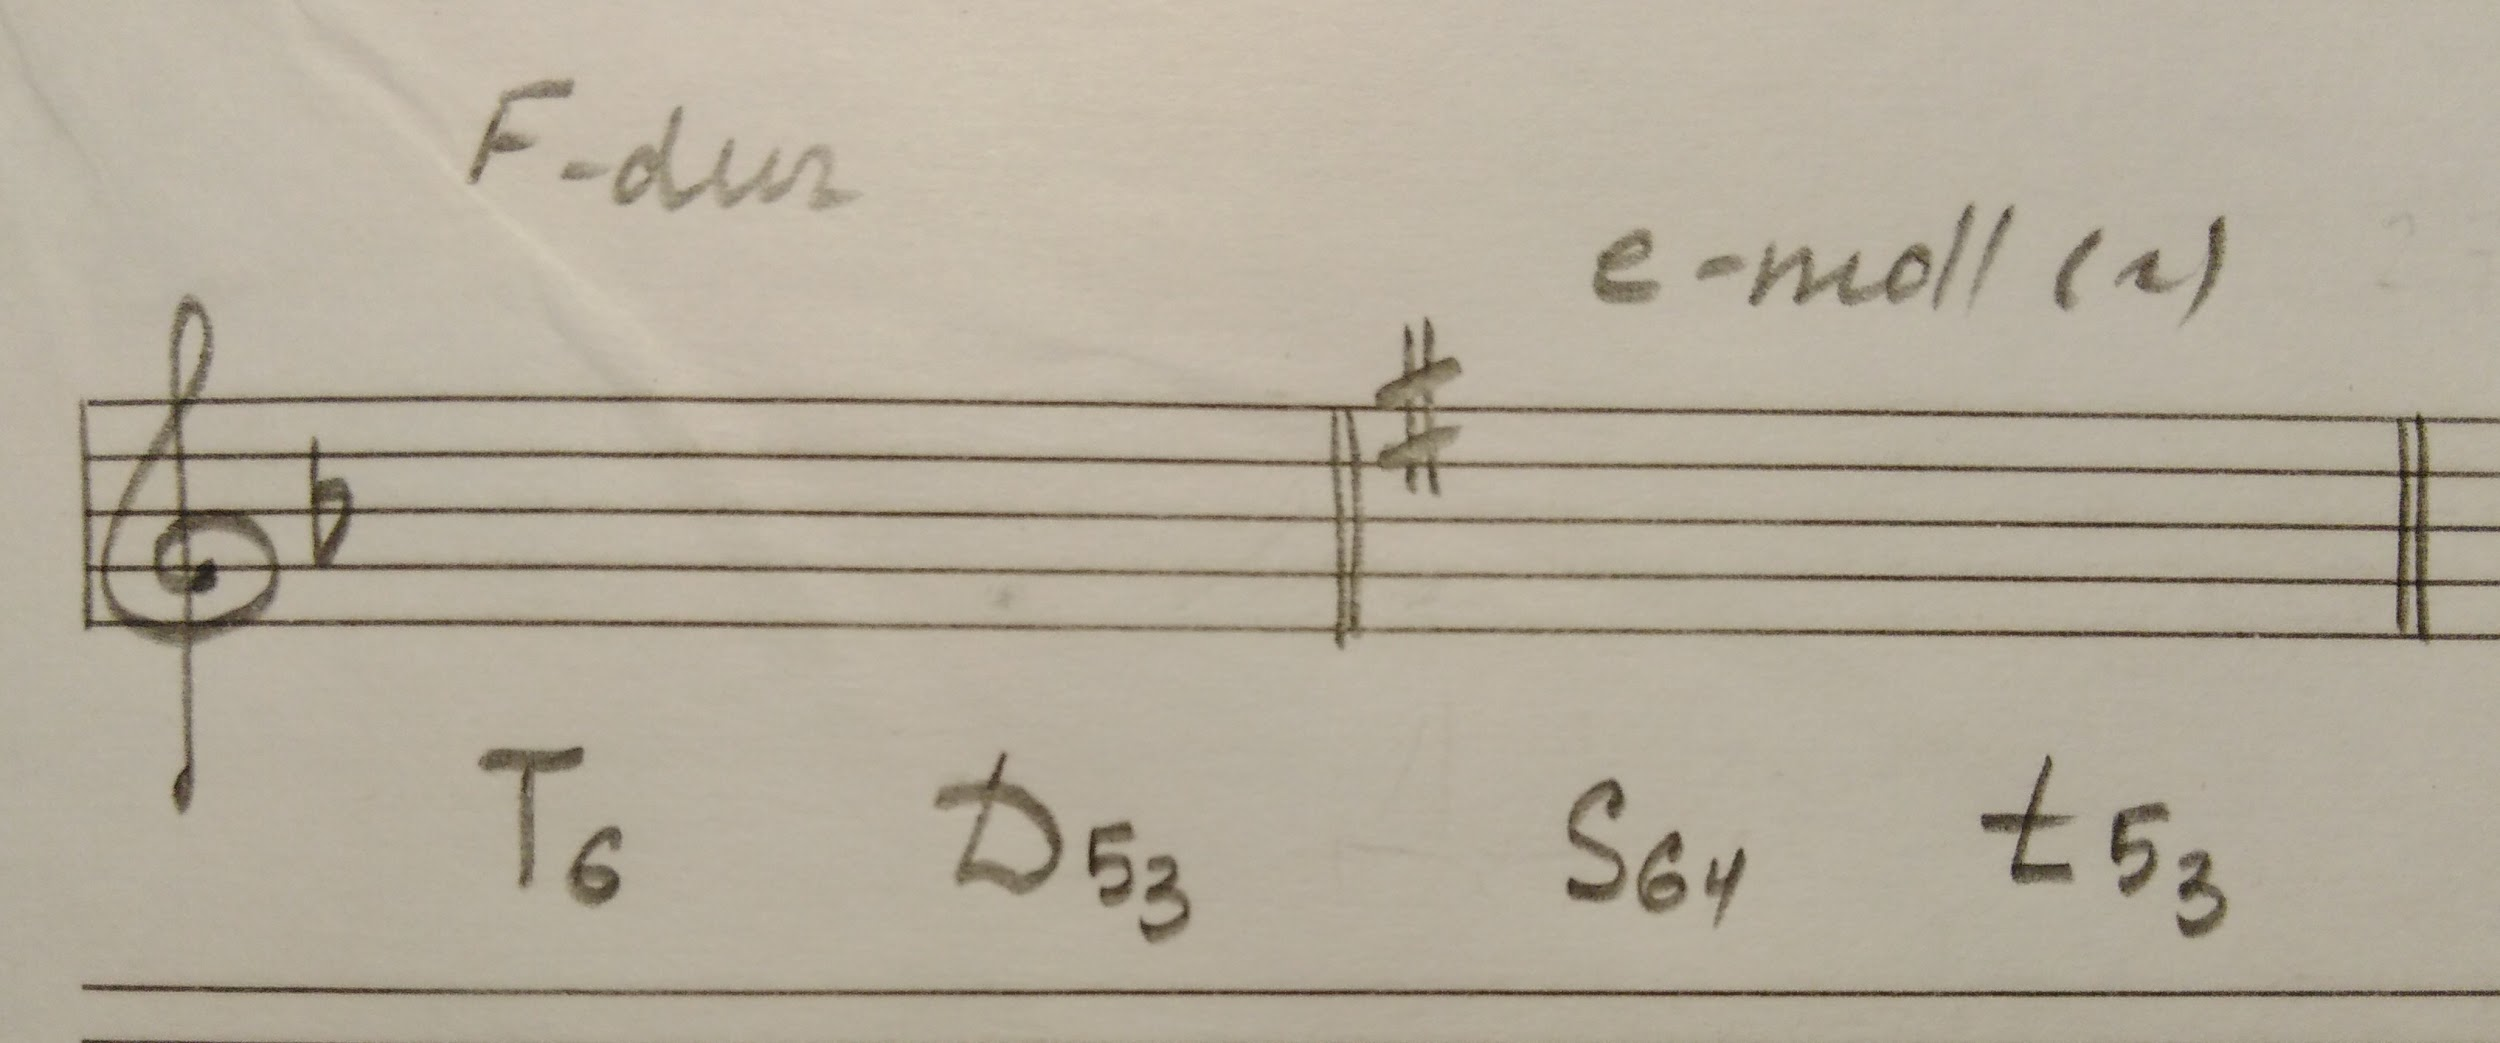 F-dur
e-moll (г)
T6 D53 S64 t53